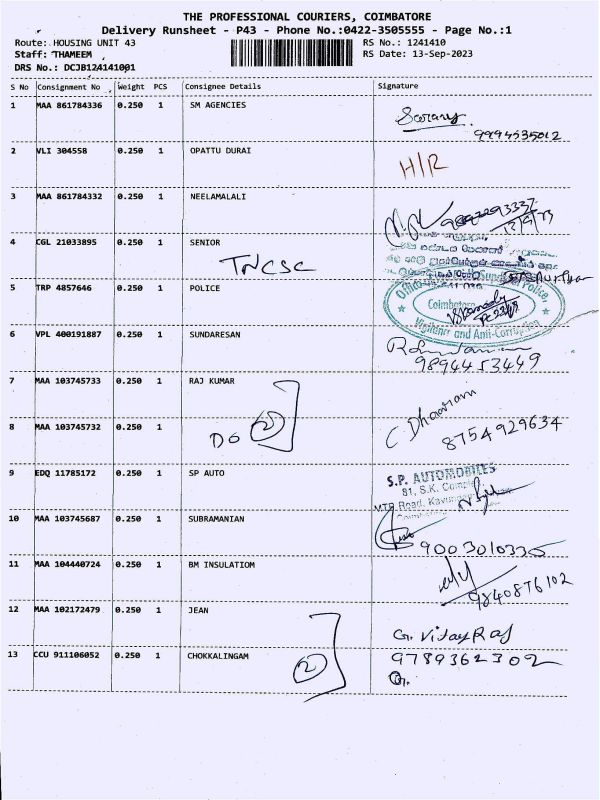 THE PROFESSIONAL COURIERS, COIMBATORE
Delivery Runsheet - P43 - Phone No.:0422-3505555 - Page No.:1
Route: HOUSING UNIT 43
RS No.: 1241410
Staff: THAMEEM
RS Date: 13-Sep-2023
DRS No.: DCJB124141001
S No Consignment No Weight PCS Consignee Details Signature
1 MAA 861784336 0.250 1 SM AGENCIES
9994535012
2 VLI 304558 0.250 1 OPATTU DURAI H/R
3 MAA 861784332 0.250 1 NEELAMALALI
4 CGL 21033895 0.250 1 SENIOR
TNCSC
5 TRP 4857646 0.250 1 POLICE
Police,
Coimbatore
Vigilance and Anti-Corruption
6 VPL 400191887 0.250 1 SUNDARESAN
9894453449
7 MAA 103745733 0.250 1 RAJ KUMAR
C Dhanram
8 MAA 103745732 0.250 1
DO 2
8754929634
9 EDQ 11785172 0.250 1 SP AUTO
S.P. AUTOMOBILES
81, S.K. Complex
MTP Road,
10 MAA 103745687 0.250 1 SUBRAMANIAN
9003010335
11 MAA 104440724 0.250 1 BM INSULATIOM
9840876102
12 MAA 102172479 0.250 1 JEAN
G. Vijay Raj
13 CCU 911106052 0.250 1 CHOKKALINGAM
2
9789362302
G.